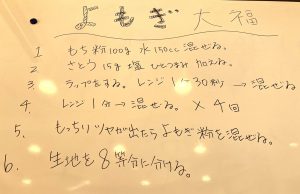 よもぎ大福
1 もち粉100g 水150cc 混ぜる。
2 さとう 15g 塩 ひとつまみ 加える。
3 ラップをする。レンジ1〜30秒 → 混ぜる
4. レンジ1分 → 混ぜる。 × 4回
5. もっちりツヤが出たらよもぎ粉を混ぜる。
6. 生地を8等分に分ける。